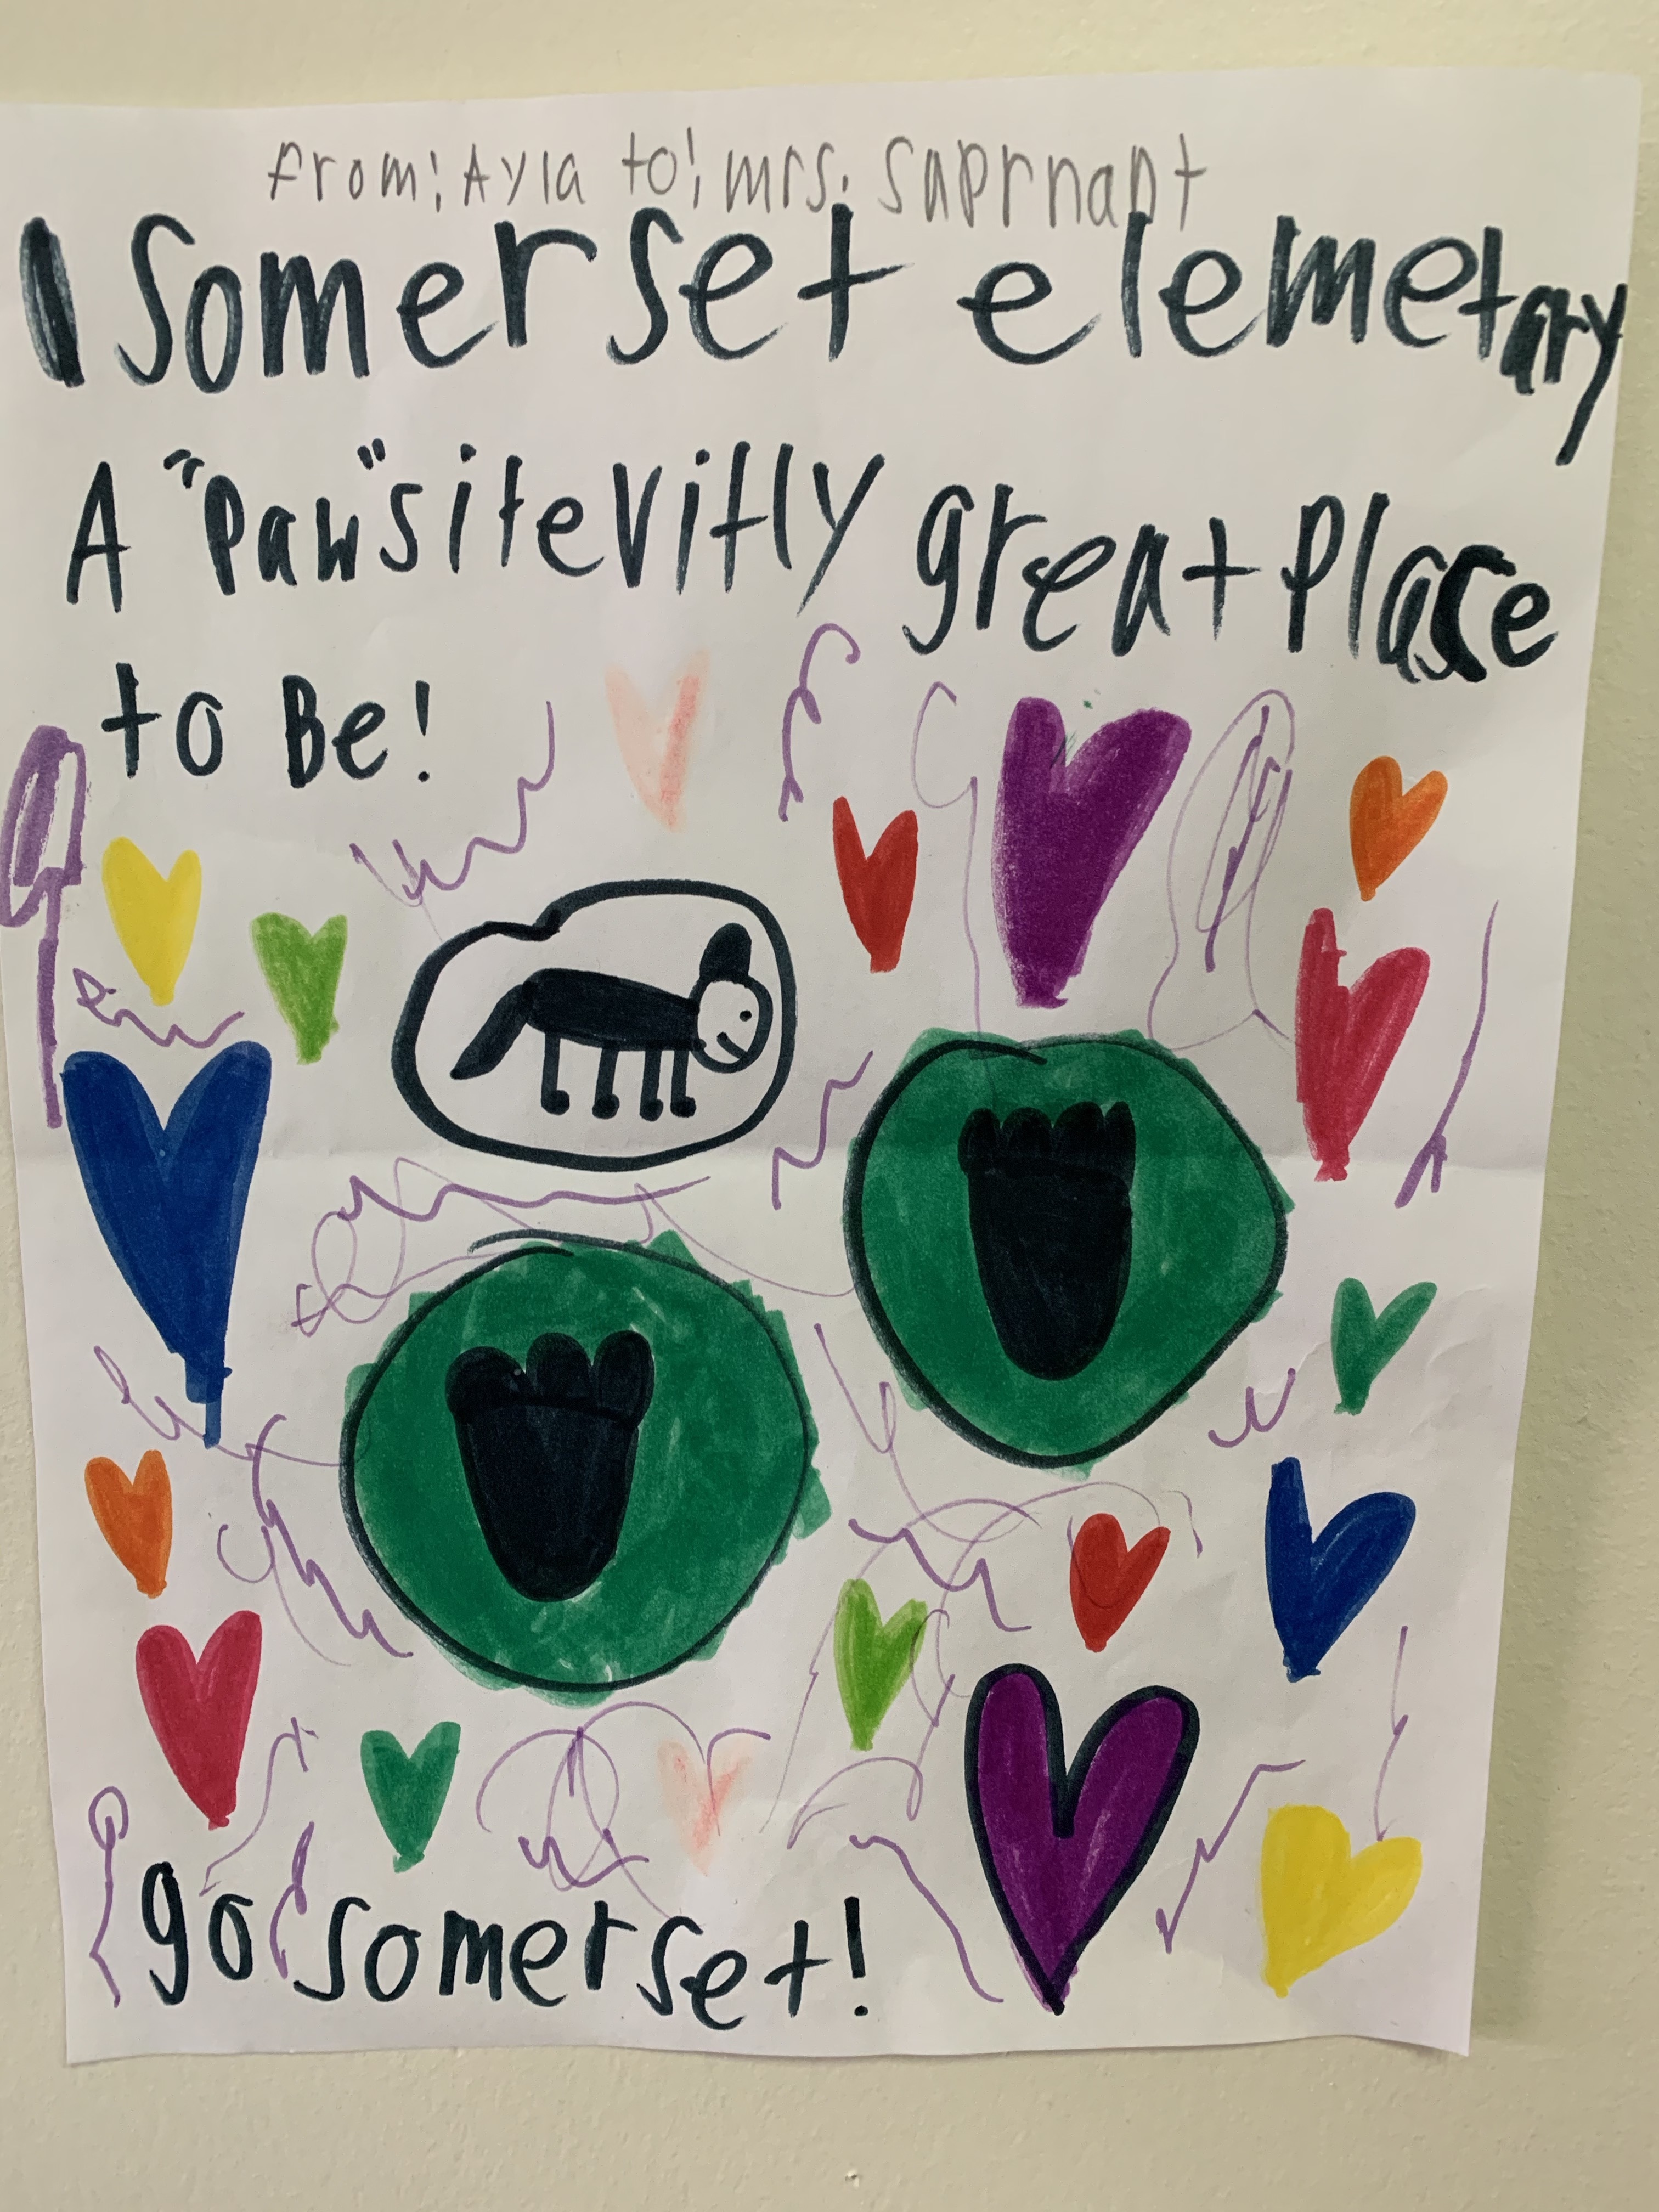 from: Ayla to: mrs. Suprnant
Somerset elemetary
A "Paw"sitevitly great Place
to Be!
go somerset!